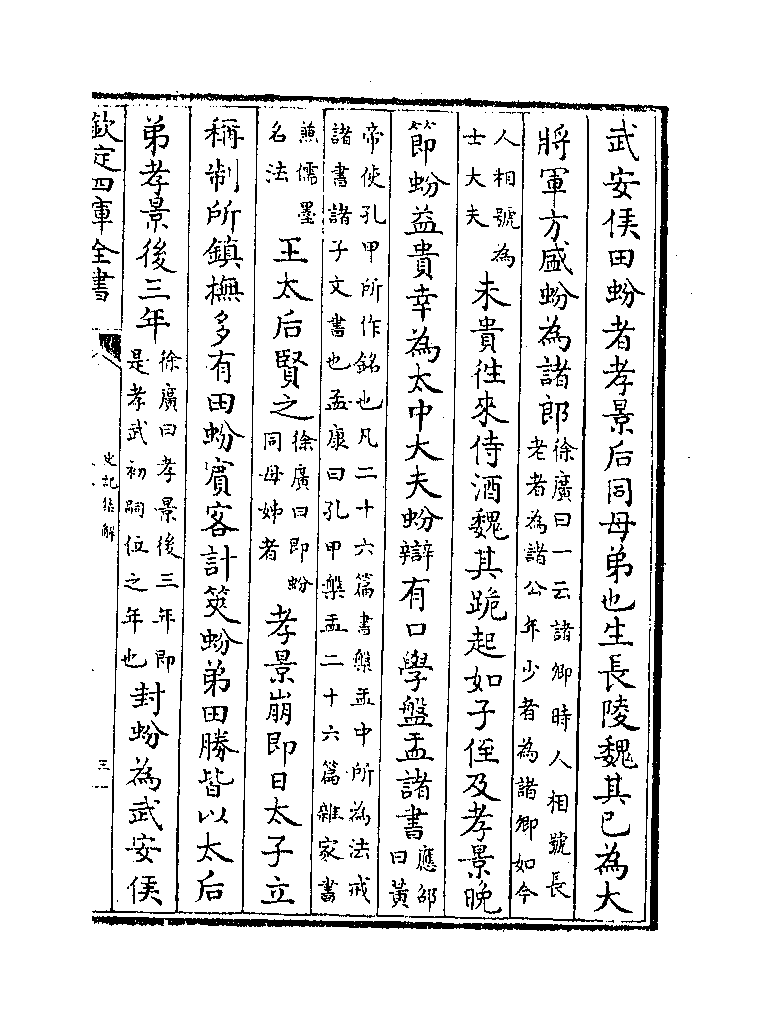 武安侯田蚡者孝景后同母弟也生長陵魏其已為大
將軍方盛蚡為諸郎徐廣曰一云諸卿時人相號長
老者為諸公年少者為諸卿如今
人相號為
士大夫未貴徃來侍酒魏其跪起如子侄及孝景晚
節蚡益貴幸為太中大夫蚡辯有口學盤盂諸書應邵
曰黃
帝使孔甲所作銘也凡二十六篇書槃盂中所為法戒
諸書諸子文書也孟康曰孔甲槃盂二十六篇雜家書
兼儒墨
名法王太后賢之徐廣曰即蚡
同母姊者孝景崩即日太子立
稱制所鎮撫多有田蚡賓客計筴蚡弟田勝皆以太后
弟孝景後三年徐廣曰孝景後三年即
是孝武初嗣位之年也封蚡為武安侯
欽定四庫全書
史記集解
三